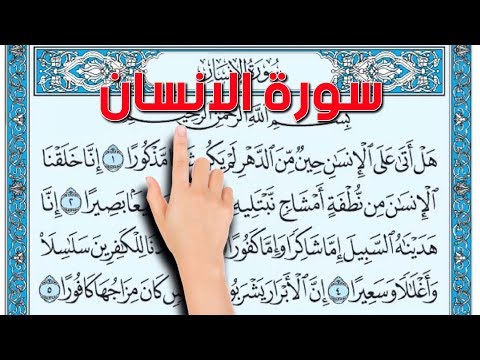 سُورَةُ الإِنسَانِ
سورة الإنسان
بِسْمِ اللَّهِ الرَّحْمَٰنِ الرَّحِيمِ
هَلْ أَتَىٰ عَلَى الْإِنسَانِ حِينٌ مِّنَ الدَّهْرِ لَمْ يَكُن مَّذْكُورًا ١ إِنَّا خَلَقْنَا
الْإِنسَانَ مِن نُّطْفَةٍ أَمْشَاجٍ نَّبْتَلِيهِ بَصِيرًا ٢ إِنَّا
هَدَيْنَاهُ السَّبِيلَ إِمَّا شَاكِرًا وَإِمَّا كَفُورًا لِلْكَافِرِينَ سَلَاسِلَا
وَأَغْلَالًا وَسَعِيرًا ٤ إِنَّ الْأَبْرَارَ يَشْرَبُونَ كَانَ مِزَاجُهَا كَافُورًا ٥